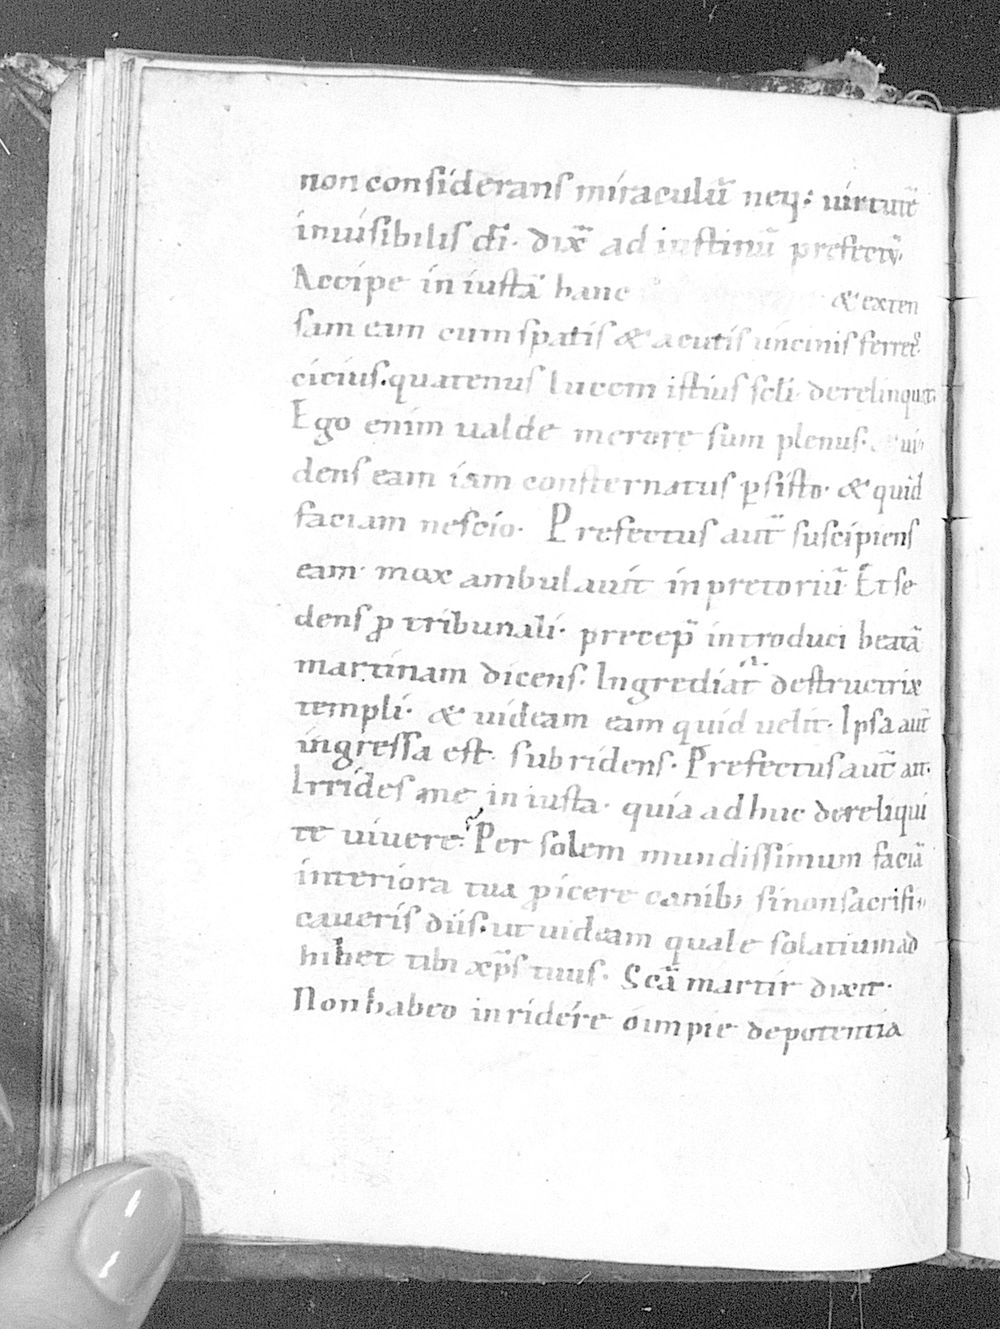 non considerans miraculū neq; uirtutē
inuisibilis dī. dix̄ ad iustinū prefectū.
Accipe iniustā hanc & exten
sam eam cum spatis & acutis uncinis ferreis
cicius. quatenus lucem istius soli derelinquat.
Ego enim ualde merore sum plenus. ui
dens eam iam consternatus p̱sisto. & quid
faciam nescio. Prefectus aut̄ suscipiens
eam. mox ambulauit in pretoriū. Et se
dens ꝓ tribunali. precep̄ introduci beatā
martinam dicens. Ingrediat̄ destructrix
templi. & uideam eam quid uelit. Ipsa aut̄
ingressa est. subridens. Prefectus aut̄ ait.
Irrides me iniusta. quia adhuc dereliqui
te uiuere? Per solem mundissimum faciā
interiora tua ꝓicere canib; si non sacrifi
caueris diis. ut uideam quale solatium ad
hibet tibi xp̄s tuus. Sc̄a martir dixit.
Non habeo inridere o impie de potentia